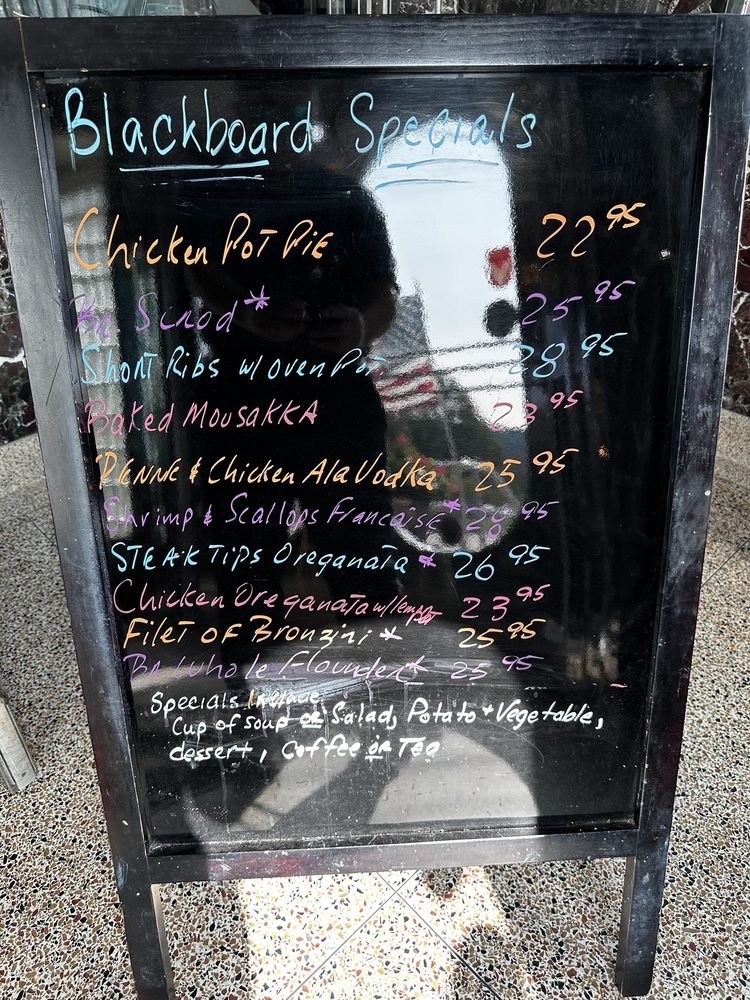 Blackboard Specials
Chicken Pot Pie 22 95
Br. Scrod* 25 95
Short Ribs w/ oven Pot. 28 95
Baked Mousakka 23 95
Penne & Chicken Ala Vodka 25 95
Shrimp & Scallops Francaise* 28 95
STEAK TIPS Oreganata * 26 95
Chicken Oreganata w/ 23 95
Filet of Bronzini * 25 95
Br. Whole Flounder* 25 95
Specials Include
Cup of soup or Salad, Potato + Vegetable,
dessert, Coffee or Tea